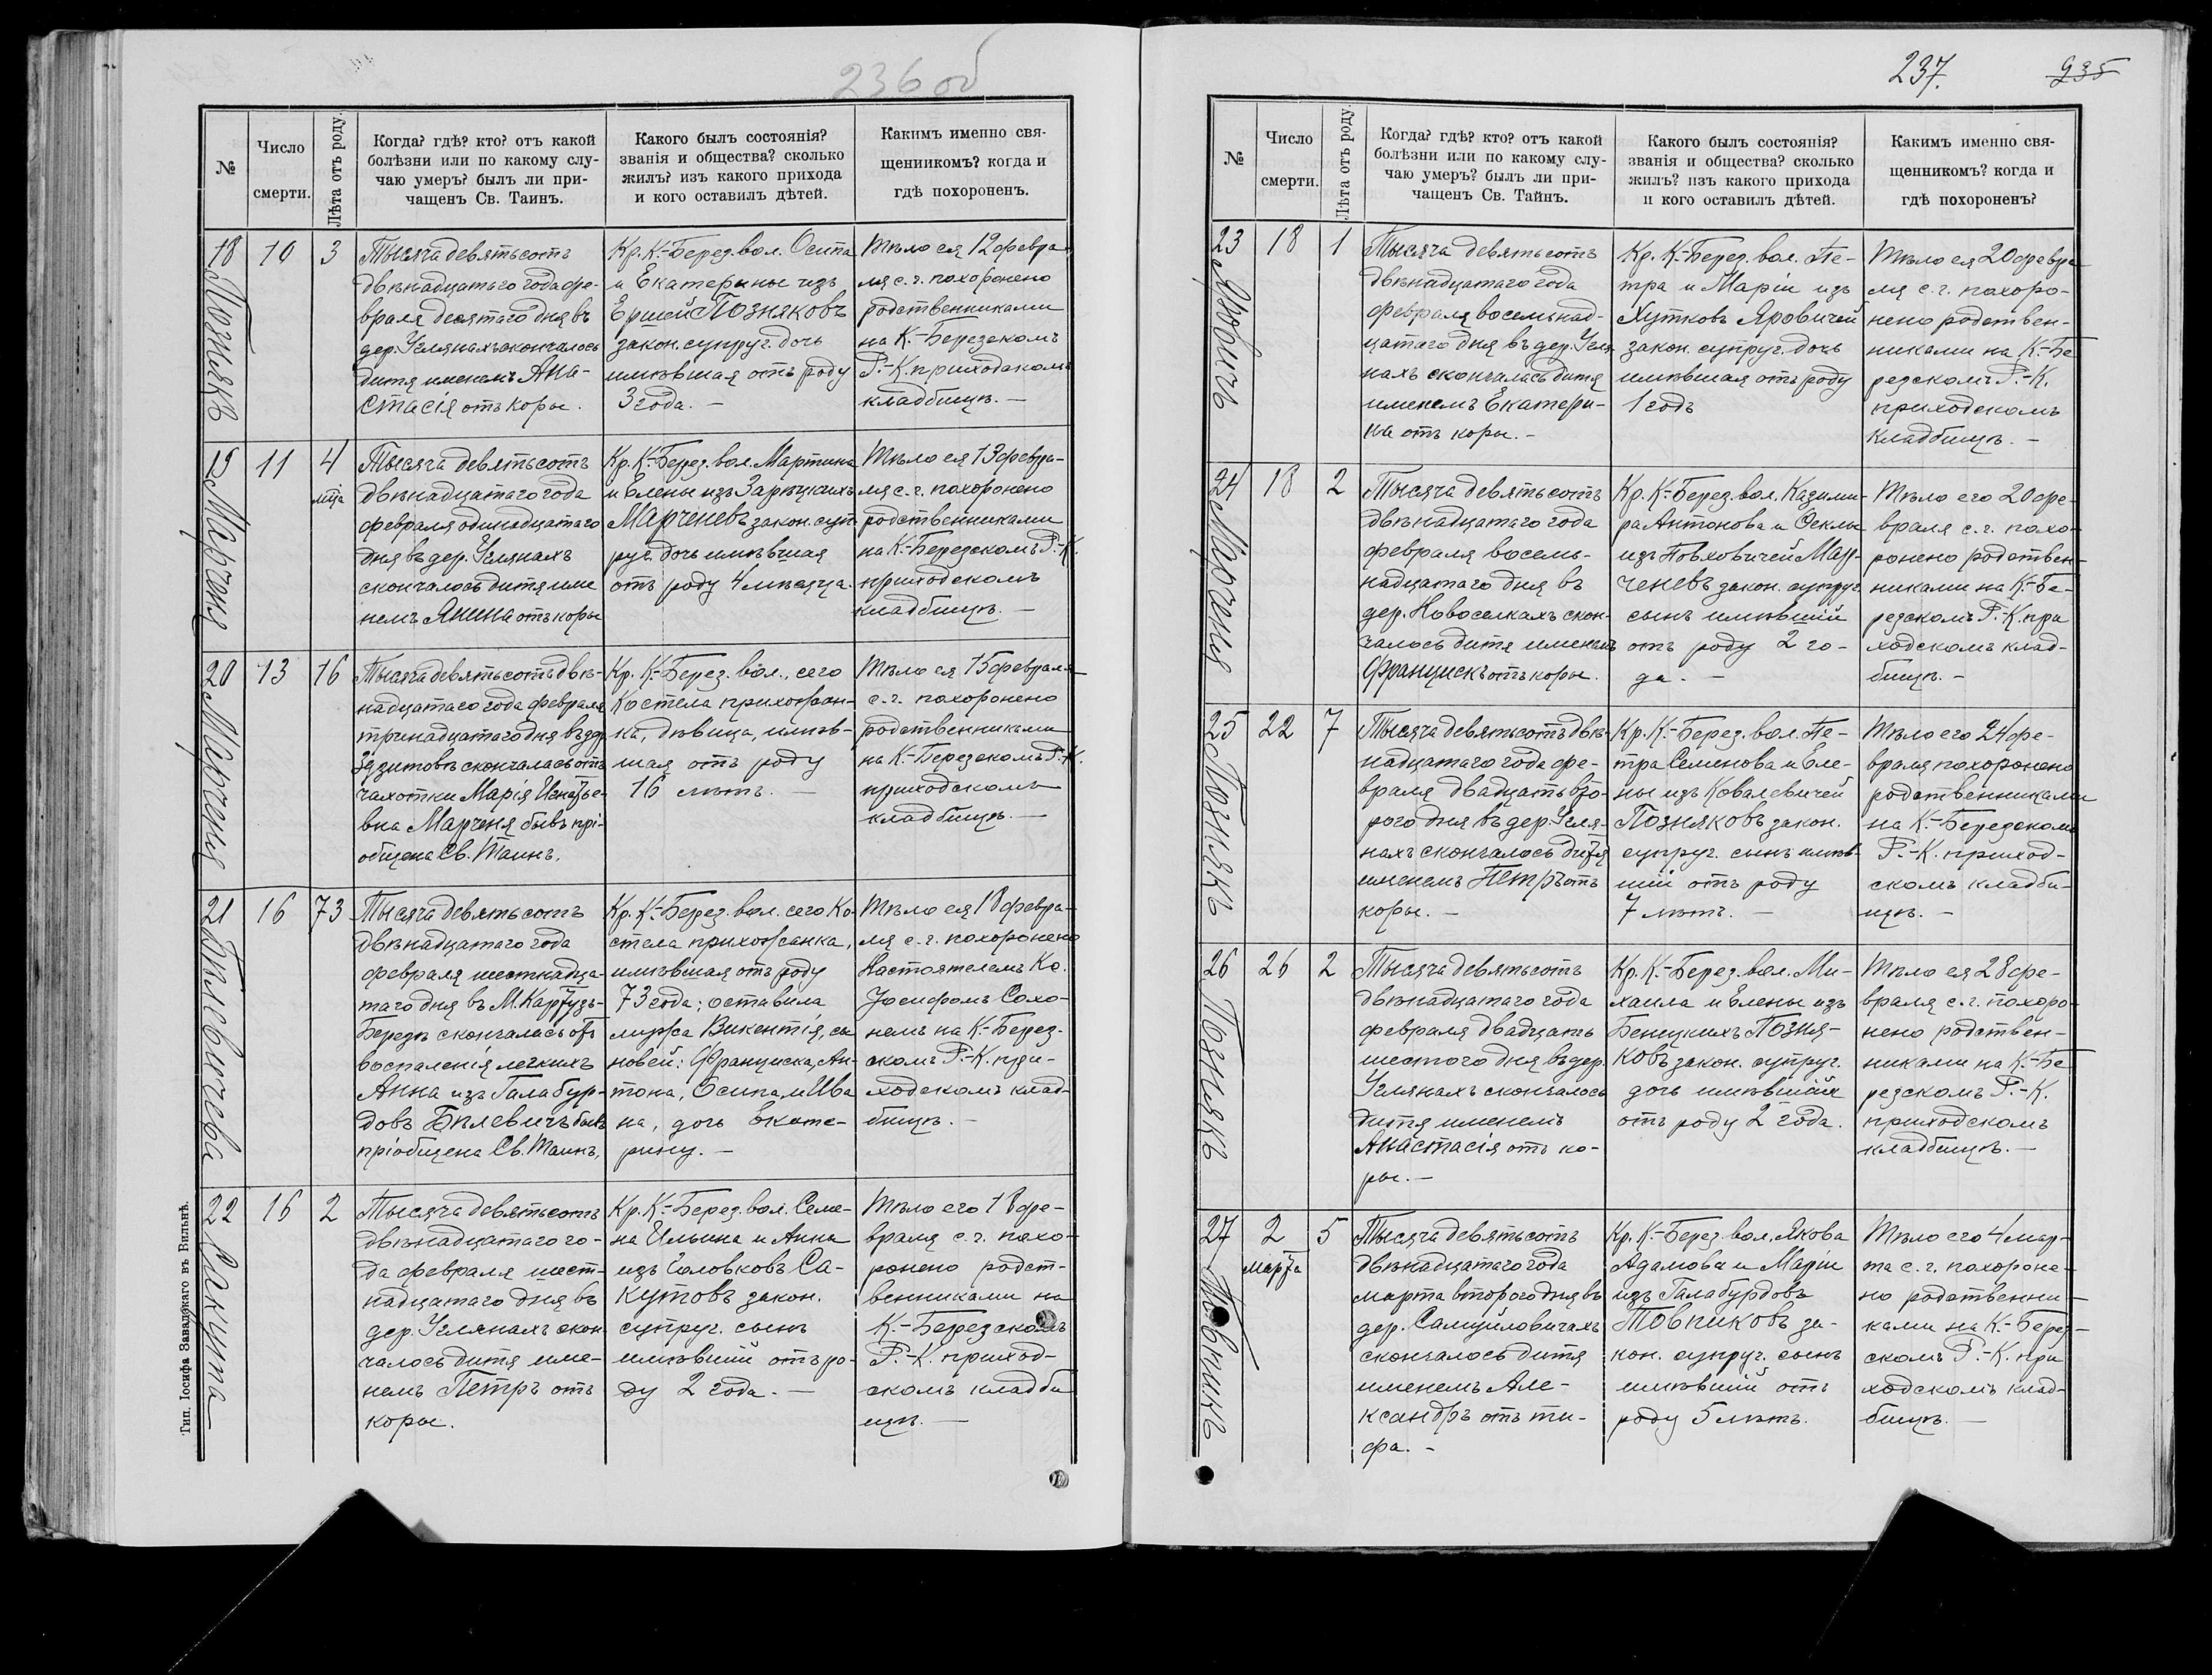 236 об
№
Число
смерти.
Лѣта отъ роду.
Когда? гдѣ? кто? отъ какой
болѣзни или по какому слу-
чаю умеръ? былъ ли при-
чащенъ Св. Таинъ.
Какого былъ состоянія?
званія и общества? сколько
жилъ? изъ какого прихода
и кого оставилъ дѣтей.
Какимъ именно свя-
щенникомъ? когда и
гдѣ похороненъ.
18
Познякъ
10
3
Тысяча девятьсотъ
двѣнадцатаго года фе-
враля десятаго дня въ
дер. Углянахъ скончалось
дитя именемъ Ана-
стасія отъ коры.
Кр. К.-Берез. вол. Осипа
и Екатерины изъ
Ершей Позняковъ
закон. супруг. дочь
имѣвшая отъ роду
3 года. -
Тѣло ея 12 февра-
ля с. г. похоронено
родственниками
на К.-Березскомъ
Р.-К. приходскомъ
кладбищѣ. -
19
Марченя
11
4
мца
Тысяча девятьсотъ
двѣнадцатаго года
февраля одинадцатаго
дня въ дер. Углянахъ
скончалось дитя име
немъ Янина отъ коры
Кр. К.-Берез. вол. Мартина
и Елены изъ Зарѣцкихъ
Марченевъ закон. суп-
руг. дочь имѣвшая
отъ роду 4 мѣсяца.
Тѣло ея 13 февра-
ля с. г. похоронено
родственниками
на К.-Березскомъ Р.-К.
приходскомъ
кладбищѣ. -
20
Марченя
13
16
Тысяча девятьсотъ двѣ-
надцатаго года февраля
тринадцатаго дня въ дер.
скончалась отъ
чахотки Марія Игнатье-
вна Марченя бывъ прі-
общена Св. Таинъ.
Кр. К.-Берез. вол., сего
Костела прихожан-
ка, дѣвица, имѣв-
шая отъ роду
16 лѣтъ. -
Тѣло ея 15 февраля
с. г. похоронено
родственниками
на К.-Березскомъ Р.-К.
приходскомъ
кладбищѣ. -
21
Бѣлевичева
16
73
Тысяча девятьсотъ
двѣнадцатаго года
февраля шестнадца-
таго дня въ М. Картузъ-
Березѣ скончалась отъ
воспаленія легкихъ
Анна изъ Галабур-
довъ Бѣлевичъ бывъ
пріобщена Св. Таинъ,
Кр. К.-Берез. вол. сего Ко-
стела прихожанка,
имѣвшая отъ роду
73 года; оставила
мужа Викентія, сы
новей: Франциска, Ан-
тона, Осипа и Ива
на, дочь Екате-
рину. -
Тѣло ея 18 февра-
ля с. г. похоронено
Настоятелемъ Кс.
Іосифомъ Сохо-
немъ на К.-Берез-
скомъ Р.-К. при-
ходскомъ клад-
бищѣ. -
22
Сакута
16
2
Тысяча девятьсотъ
двѣнадцатаго го-
да февраля шест-
надцатаго дня въ
дер. Углянахъ скон
чалось дитя име-
немъ Петръ отъ
коры.
Кр. К.-Берез. вол. Семе-
на Ильина и Анны
изъ Головковъ Са-
кутовъ закон.
супруг. сынъ
имѣвшій отъ ро-
ду 2 года. -
Тѣло его 18 фе-
враля с. г. похо-
ронено родст-
венниками на
К.-Березскомъ
Р.-К. приход-
скомъ кладби
щѣ. -
Тип. Іосифа Завадзкаго въ Вильнѣ.
237.
935
№
Число
смерти.
Лѣта отъ роду.
Когда? гдѣ? кто? отъ какой
болѣзни или по какому слу-
чаю умеръ? былъ ли при-
чащенъ Св. Тайнъ.
Какого былъ состоянія?
званія и общества? сколько
жилъ? изъ какого прихода
и кого оставилъ дѣтей.
Какимъ именно свя-
щенникомъ? когда и
гдѣ похороненъ?
23
Яровичъ
18
1
Тысяча девятьсотъ
двѣнадцатаго года
февраля восемьнад-
цатаго дня въ дер. Угля
нахъ скончалась дитя
именемъ Екатери-
на отъ коры. -
Кр. К.-Берез. вол. Пе-
тра и Маріи изъ
Хутковъ Яровичей
закон. супруг. дочь
имѣвшая отъ роду
1 годъ
Тѣло ея 20 февра
ля с. г. похоро-
нено родствен-
никами на К.-Бе
резскомъ Р.-К.
приходскомъ
кладбищѣ. -
24
Марченя
18
2
Тысяча девятьсотъ
двѣнадцатаго года
февраля восемь-
надцатаго дня въ
дер. Новоселкахъ скон-
чалось дитя именемъ
Францискъ отъ коры.
Кр. К.-Берез. вол. Казими-
ра Антонова и Ѳеклы
изъ Мар-
ченевъ закон. супруг.
сынъ имѣвшій
отъ роду 2 го-
да. -
Тѣло его 20 фе-
враля с. г. похо-
ронено родствен-
никами на К.-Бе-
резскомъ Р.-К. при
ходскомъ клад-
бищѣ. -
25
Познякъ
22
7
Тысяча девятьсотъ двѣ-
надцатаго года фе-
враля двадцать вто-
рого дня въ дер. Угля-
нахъ скончалось дитя
именемъ Петръ отъ
коры. -
Кр. К.-Берез. вол. Пе-
тра Семенова и Еле-
ны изъ Ковалевичей
Позняковъ закон.
супруг. сынъ имѣв-
шій отъ роду
7 лѣтъ. -
Тѣло его 24 фе-
враля похоронено
родственниками
на К.-Березскомъ
Р.-К. приход-
скомъ кладби-
щѣ. -
26
Познякъ
26
2
Тысяча девятьсотъ
двѣнадцатаго года
февраля двадцать
шестого дня въ дер.
Углянахъ скончалось
дитя именемъ
Анастасія отъ ко-
ры. -
Кр. К.-Берез. вол. Ми-
хаила и Елены изъ
Бенецкихъ Позня-
ковъ закон. супруг.
дочь имѣвшая
отъ роду 2 года.
Тѣло ея 28 фе-
враля с. г. похоро-
нено родствен-
никами на К.-Бе
резскомъ Р.-К.
приходскомъ
кладбищѣ. -
27
Товпикъ
2
марта
5
Тысяча девятьсотъ
двѣнадцатаго года
марта второго дня въ
дер. Самуйловичахъ
скончалось дитя
именемъ Але-
ксандръ отъ ти-
фа. -
Кр. К.-Берез. вол. Якова
Адамова и Маріи
изъ Галабурдовъ
Товпиковъ за-
кон. супруг. сынъ
имѣвшій отъ
роду 5 лѣтъ.
Тѣло его 4 мар-
та с. г. похороне-
но родственни-
ками на К.-Берез-
скомъ Р.-К. при
ходскомъ клад-
бищѣ. -